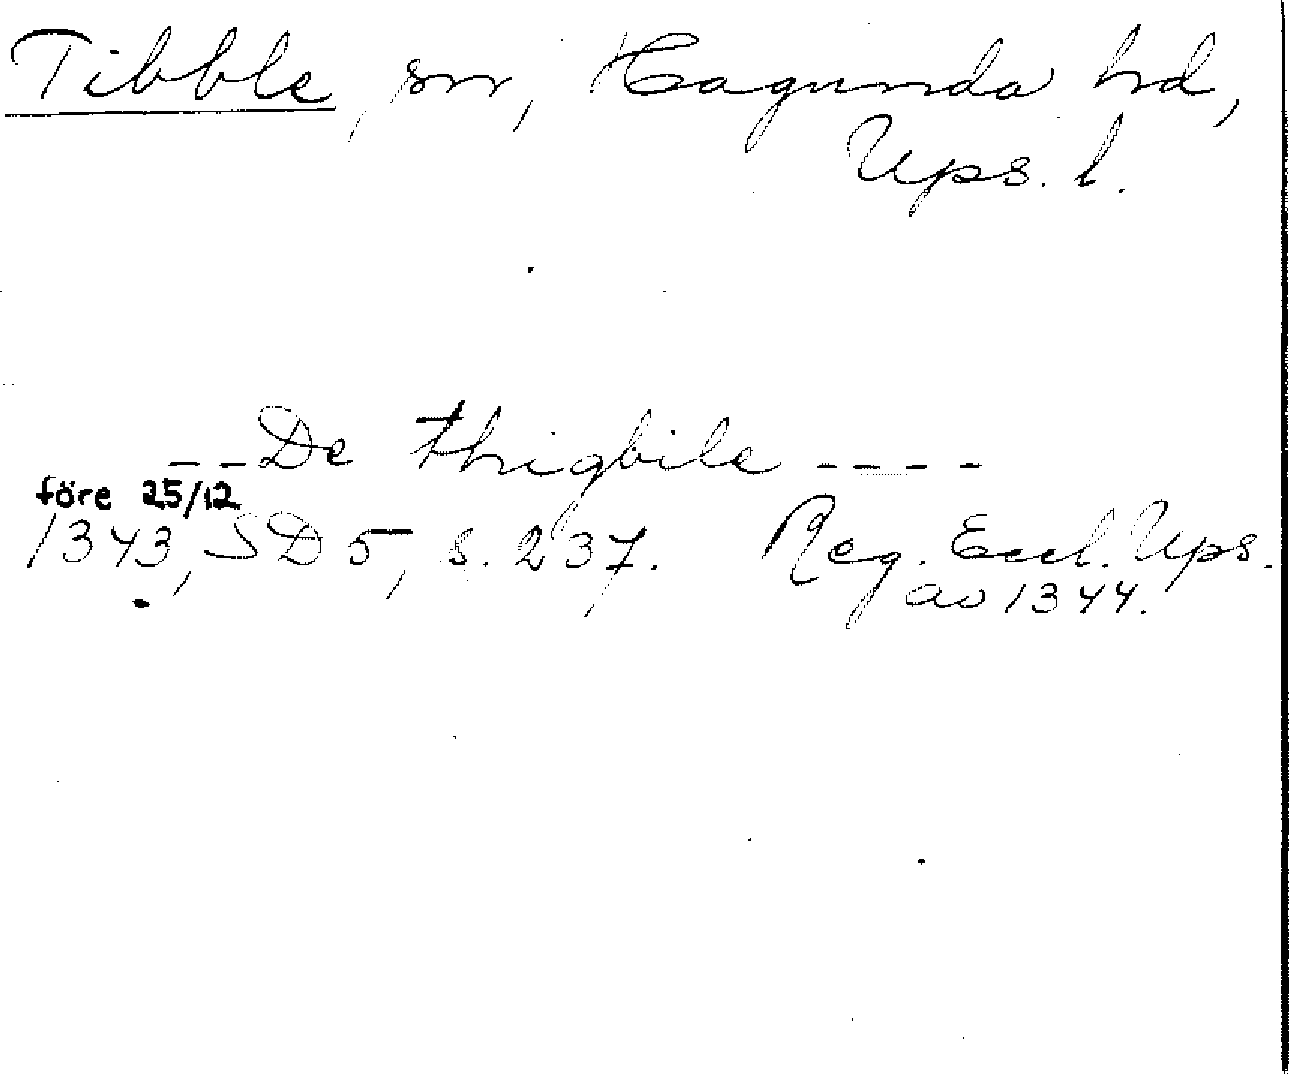 Tibble, sn, Hagunda hd,
Ups. l.
-- De thigbile ----
före 25/12
1343, SD 5, s. 237. Reg. Eccl. Ups.
av 1344.